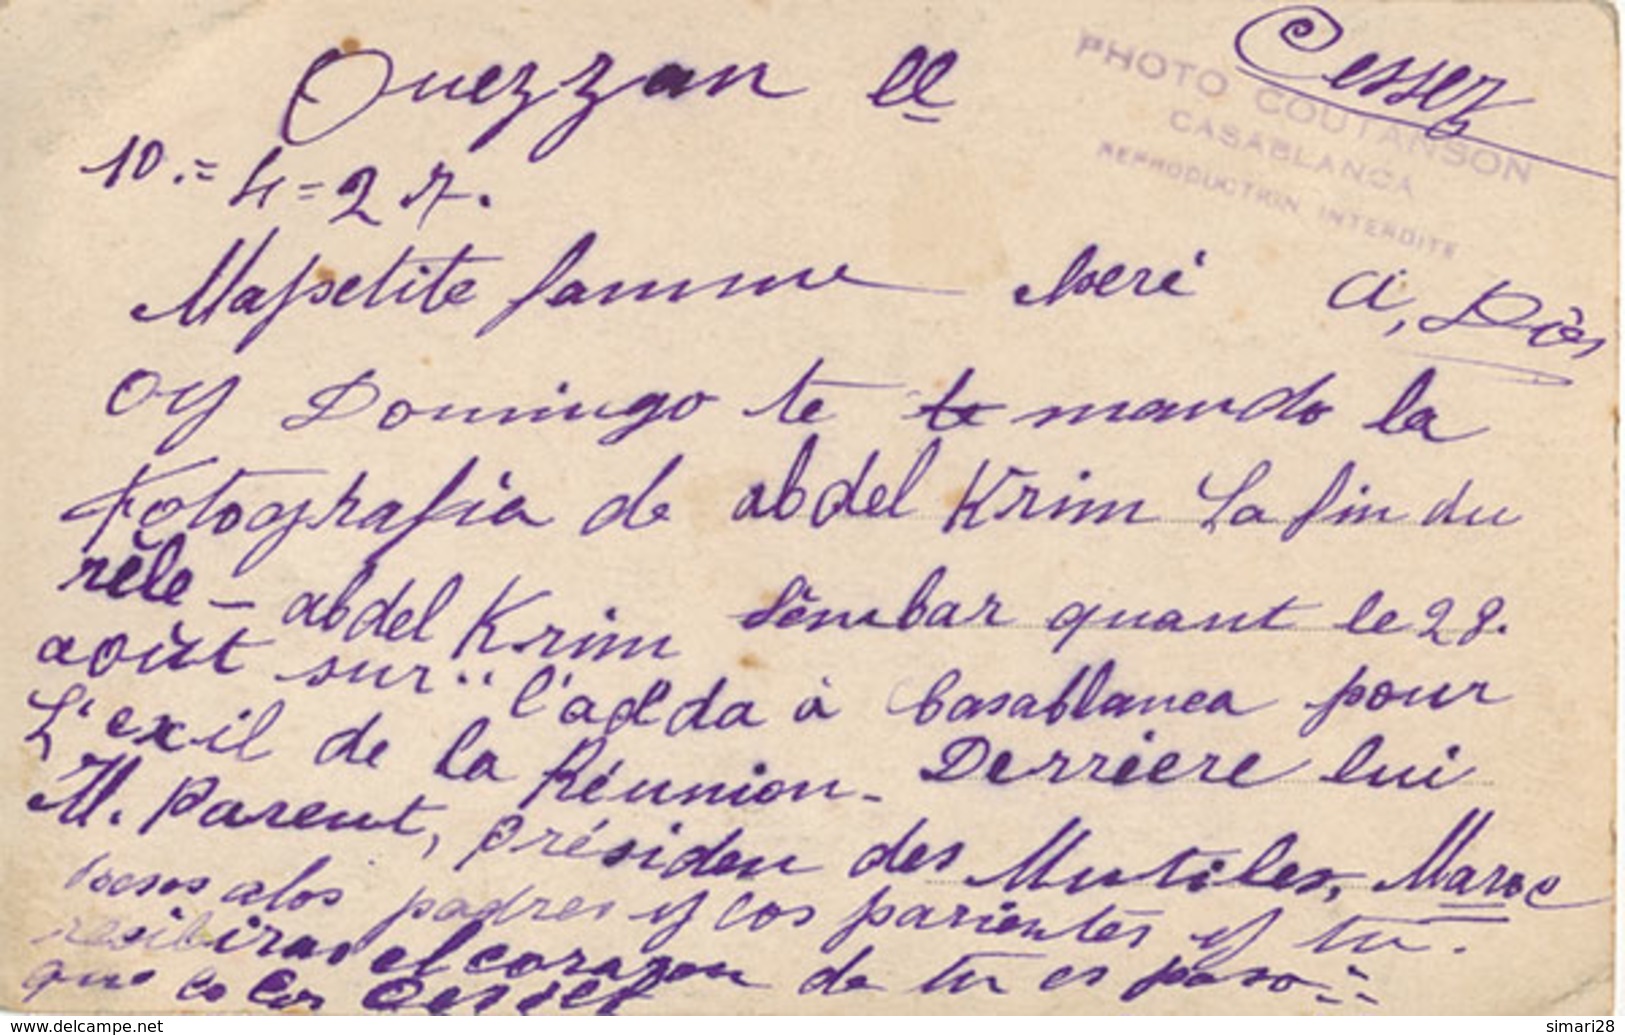 Ouezzan le
Cesser
PHOTO COUTANSON
CASABLANCA
REPRODUCTION INTERDITE
10.=4=27.
Mapetite famme cheri a, Dios
oy Domingo te te mando la
Fotografia de abdel Krim La fin du
rêle - abdel Krim s'êmbar quant le 28.
août sur " l'adda à Casablanca pour
L'exil de la Réunion - Derriere lui
M. Parent, présiden des Mutiles, Maroc
besos alos padres y los parientes y tu.
resibiras el corazon de tu esposo
que lo es
www.delcampe.net
simari28